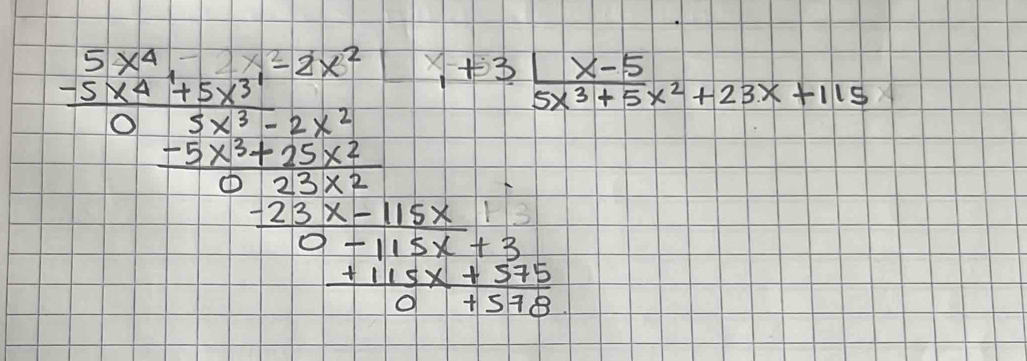 5x⁴ - 2x² +3 | x-5
-5x⁴ +5x³ 5x³+5x²+23x+115
0 5x³-2x²
-5x³+25x²
0 23x²
-23x-115x
0 -115x+3
+115x+575
0 +578